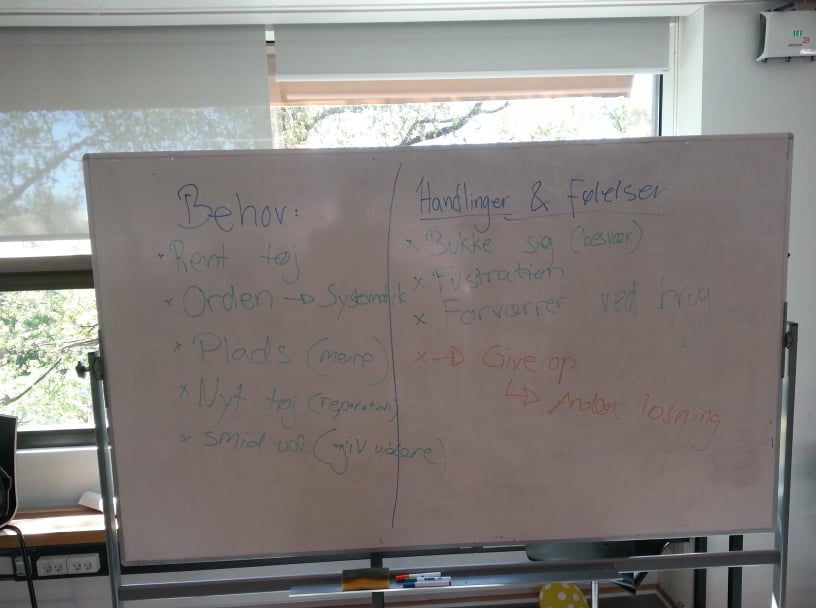 Behov:
* Rent tøj
* Orden → Systematik
* Plads (mere)
* Nyt tøj (reparation)
* smid ud (giv videre)
Handlinger & Følelser
× Bukke sig (besvær)
× Fustration
× Forværrer ved brug
× → Give op
↳ Anden løsning